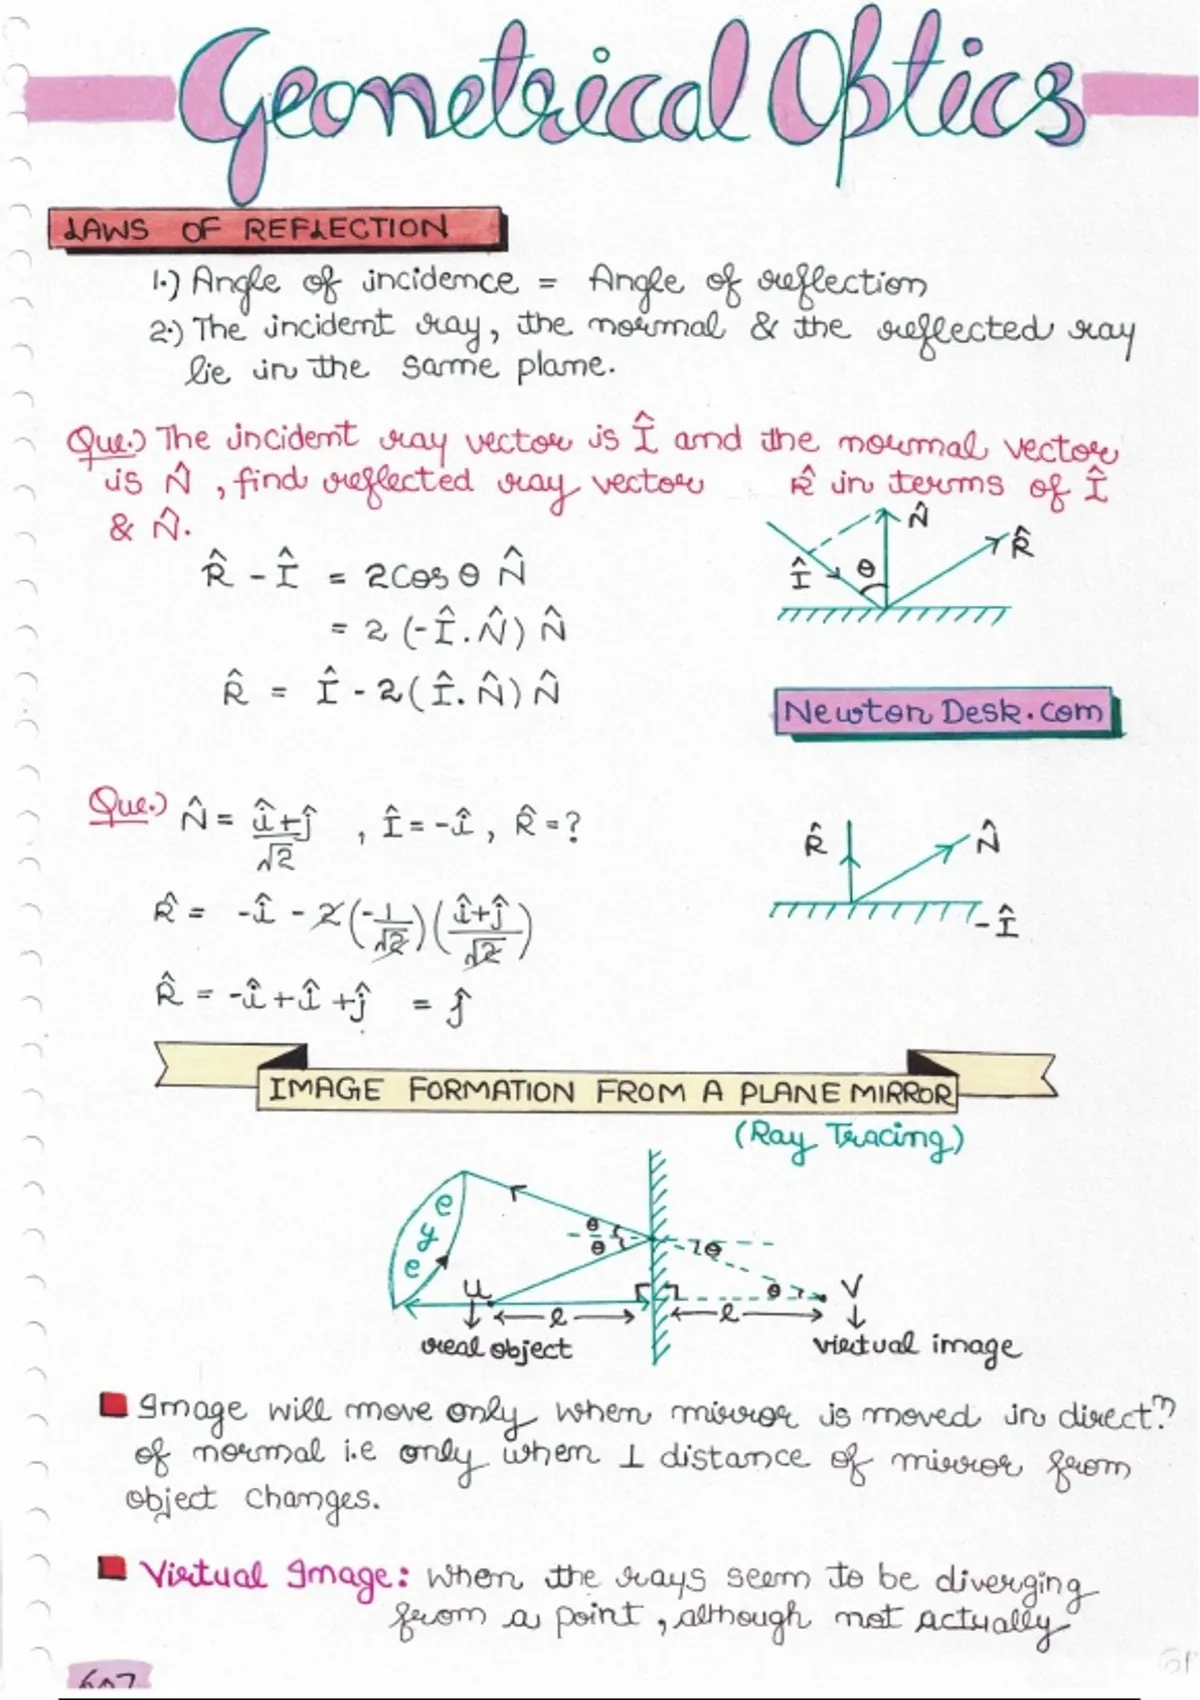 Geometrical Optics
LAWS OF REFLECTION
1.) Angle of incidence = Angle of reflection
2.) The incident ray, the normal & the reflected ray
lie in the same plane.
Que.) The incident ray vector is Î and the normal vector
is N̂, find reflected ray vector R̂ in terms of Î
& N̂.
N̂
R̂
Î
θ
R̂ - Î = 2 cos θ N̂
= 2 (-Î.N̂) N̂
R̂ = Î - 2(Î.N̂) N̂
Newton Desk.com
Que.) N̂ = î+ĵ/√2 , Î = -î, R̂ = ?
R̂
N̂
-Î
R̂ = -î - 2(-1/√2)(î+ĵ/√2)
R̂ = -î + î + ĵ = ĵ
IMAGE FORMATION FROM A PLANE MIRROR
(Ray Tracing)
eye
θ
θ
θ
θ
u
V
l
l
real object
virtual image
Image will move only when mirror is moved in directn
of normal i.e only when ⊥ distance of mirror from
object changes.
Virtual Image: when the rays seem to be diverging
from a point, although not actually
607